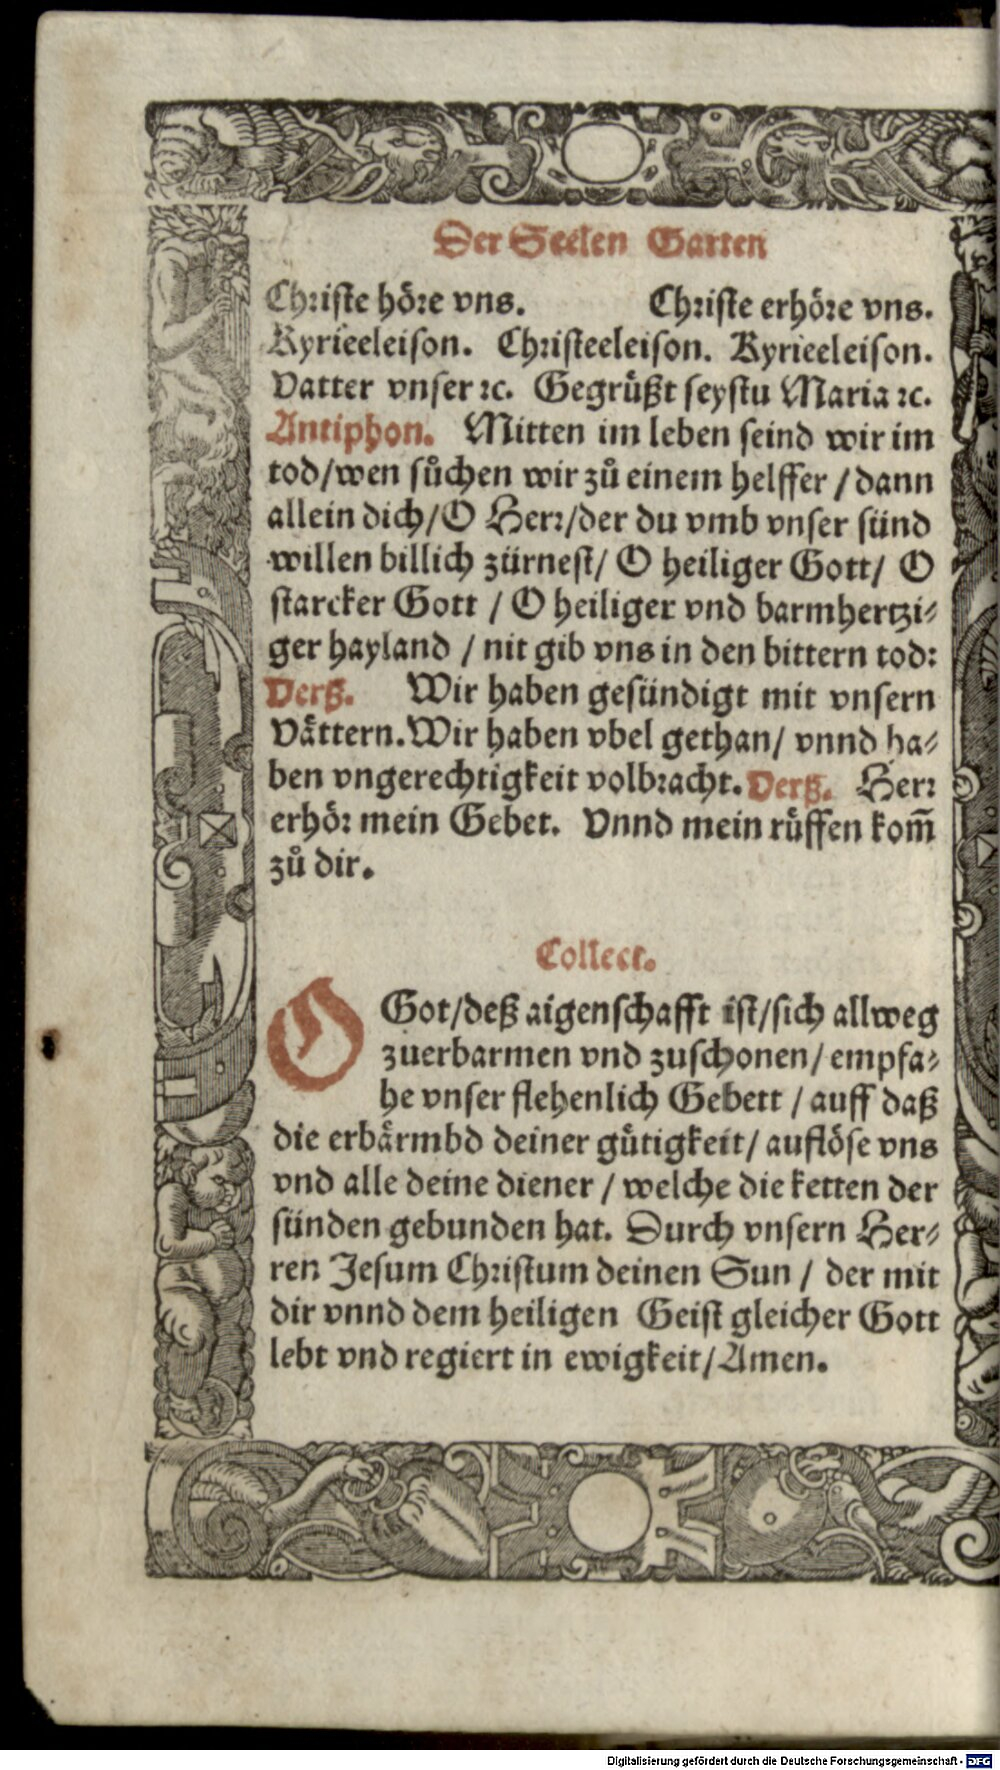 Der Seelen Garten
Christe höre vns. Christe erhöre vns.
Kyrieeleison. Christeeleison. Kyrieeleison.
Vatter vnser ꝛc. Gegrüßt seystu Maria ꝛc.
Antiphon. Mitten im leben seind wir im
tod/wen sůchen wir zů einem helffer / dann
allein dich/O Herr/der du vmb vnser sünd
willen billich zürnest/ O heiliger Gott/ O
starcker Gott / O heiliger vnd barmhertzi⸗
ger hayland / nit gib vns in den bittern tod:
Verß. Wir haben gesündigt mit vnsern
Vättern. Wir haben vbel gethan/ vnnd ha⸗
ben vngerechtigkeit volbracht. Verß. Herr
erhör mein Gebet. Vnnd mein rüffen kom̃
zů dir.
Collect.
O Got/deß aigenschafft ist/sich allweg
zuerbarmen vnd zuschonen/ empfa⸗
he vnser flehenlich Gebett / auff daß
die erbärmbd deiner gütigkeit/ auflöse vns
vnd alle deine diener / welche die ketten der
sünden gebunden hat. Durch vnsern Her⸗
ren Jesum Christum deinen Sun / der mit
dir vnnd dem heiligen Geist gleicher Gott
lebt vnd regiert in ewigkeit/Amen.
Digitalisierung gefördert durch die Deutsche Forschungsgemeinschaft - DFG